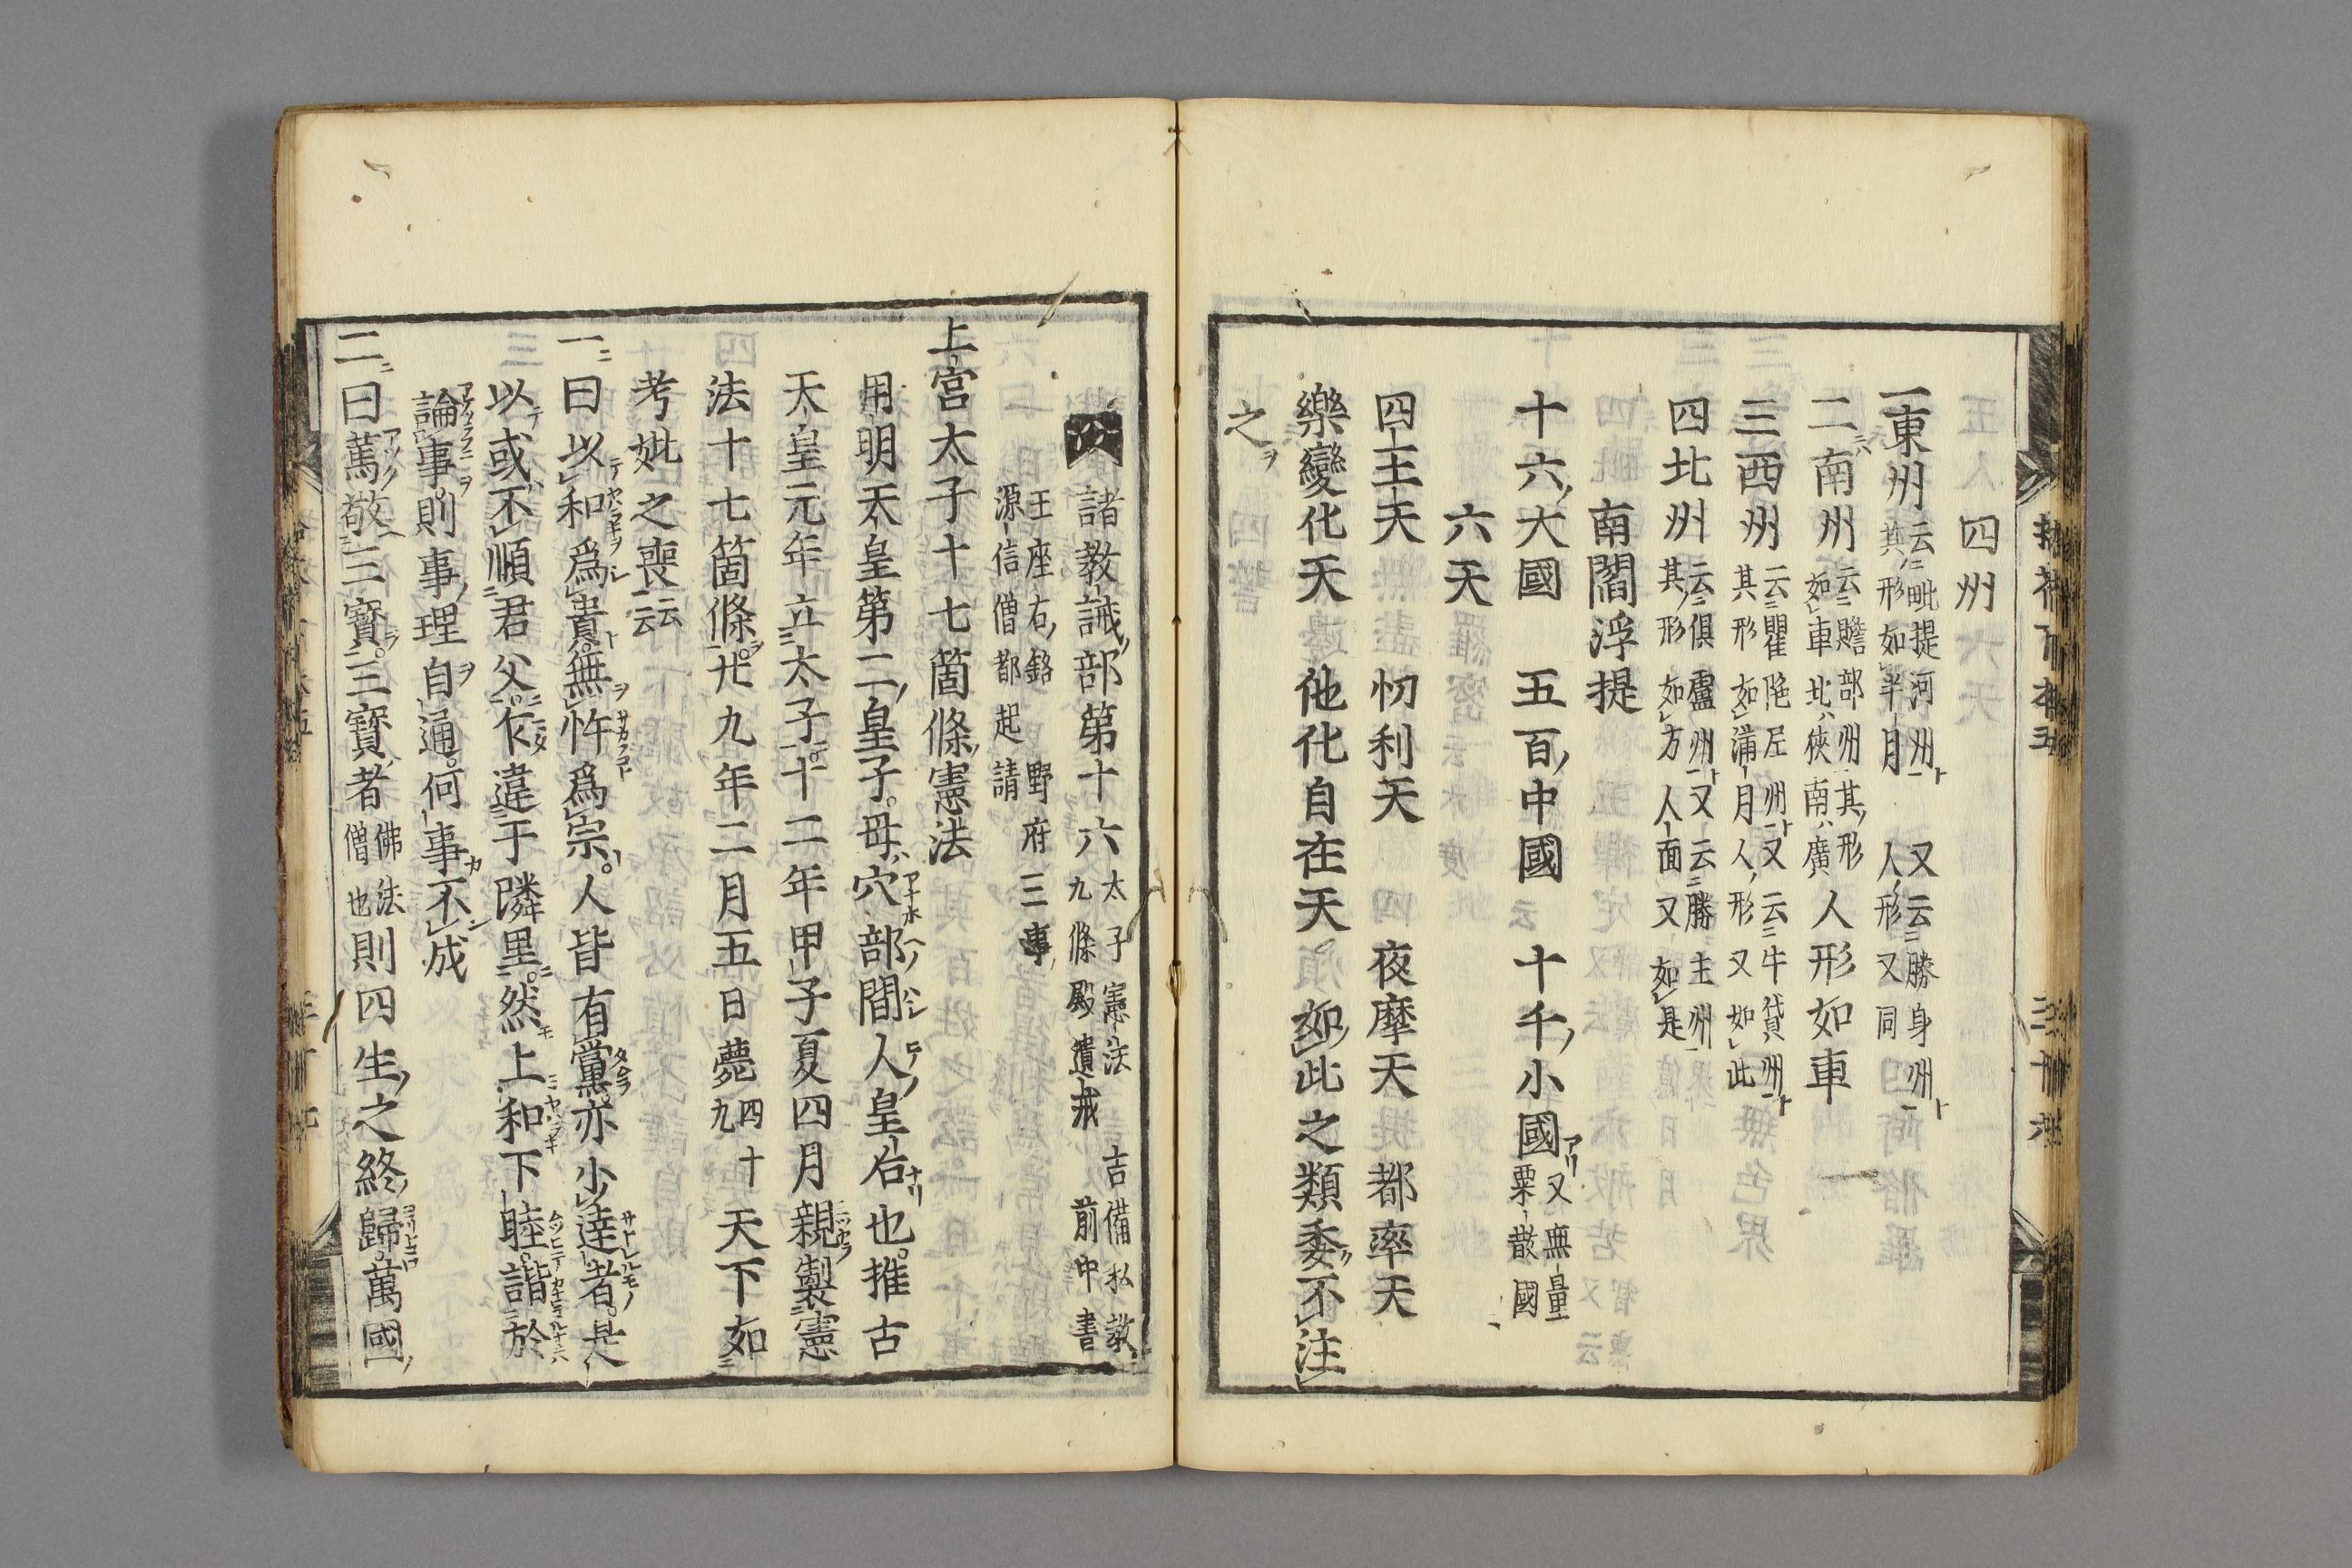 四州
一東州 云毗提河州 又云勝身州 其形如半月 人形又同
二南州 云贍部州其形 如車北狹南廣 人形如車
三西州 云瞿陁尼州又云牛貨州 其形如滿月人形又如此
四北州 云俱盧州又云勝主州 其形如方人面又如是
南閻浮提
十六大國 五百中國 十千小國 又無量 粟散國
六天
四王天 忉利天 夜摩天 都率天
樂變化天 他化自在天 如此之類委不注
之
諸教誡部第十六 太子憲法 吉備私教 九條殿遺戒 前中書
王座右銘 野府三事 源信僧都起請
上宮太子十七箇條憲法
用明天皇第二皇子母穴部間人皇后也推古
天皇元年立太子十二年甲子夏四月親製憲
法十七箇條廿九年二月五日薨四十九天下如
考妣之喪云云
一曰以和爲貴無忤爲宗人皆有黨亦少達者是
以或不順君父乍違于隣里然上和下睦諧於
論事則事理自通何事不成
二曰篤敬三寶三寶者佛法僧也則四生之終歸萬國